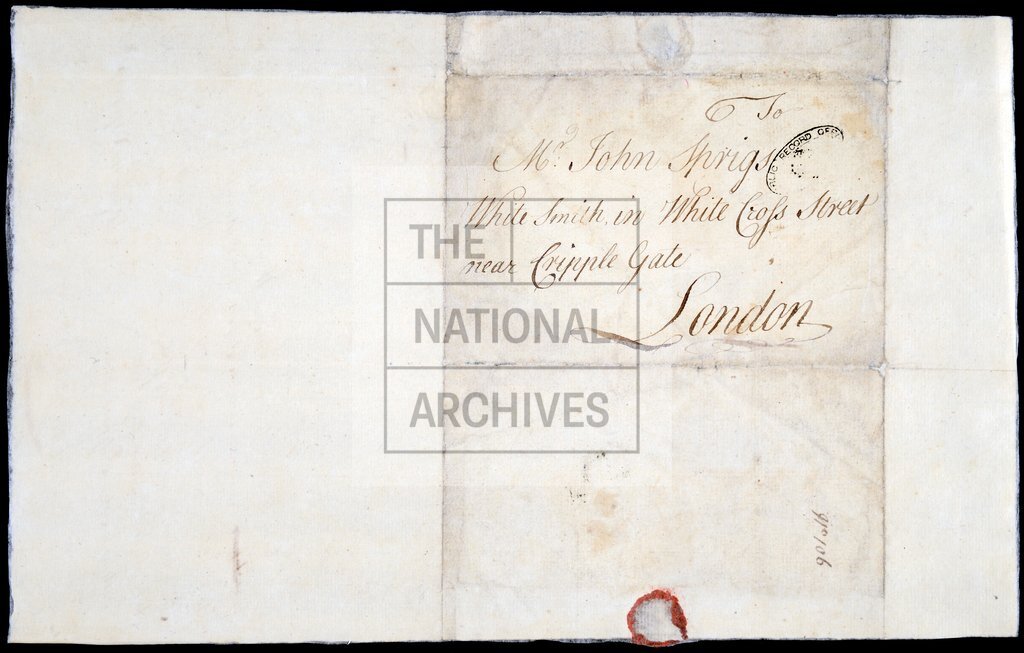 To
Mr. John Sprigs
White Smith in White Cross Street
near Cripple Gate
London
PUBLIC RECORD OFFICE
THE
NATIONAL
ARCHIVES